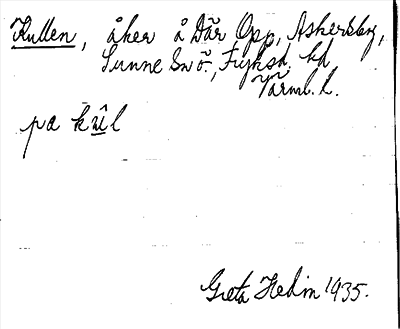 Kullen, åker å Där Opp, Askersby,
Sunne Snö., Fryksd. hd,
Värml. l.
pa kûl
Greta Hedin 1935.